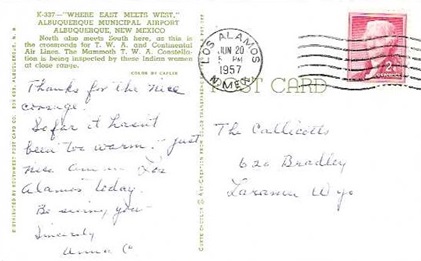 K-337—"WHERE EAST MEETS WEST,"
ALBUQUERQUE MUNICIPAL AIRPORT
ALBUQUERQUE, NEW MEXICO
North also meets South here, as this is
the crossroads for T. W. A. and Continental
Air Lines. The Mammoth T. W. A. Constella-
tion is being inspected by these Indian women
at close range.
COLOR BY
Thanks for the nice
So far it hasn't
been too warm - just
nice. Am in Los
Alamos today.
Be seeing you
Sincerely
Anna C
POST CARD
LOS ALAMOS
JUN 20
5 PM
1957
N. MEX.
2
The Callicotts
620 Bradley
Laramie Wyo